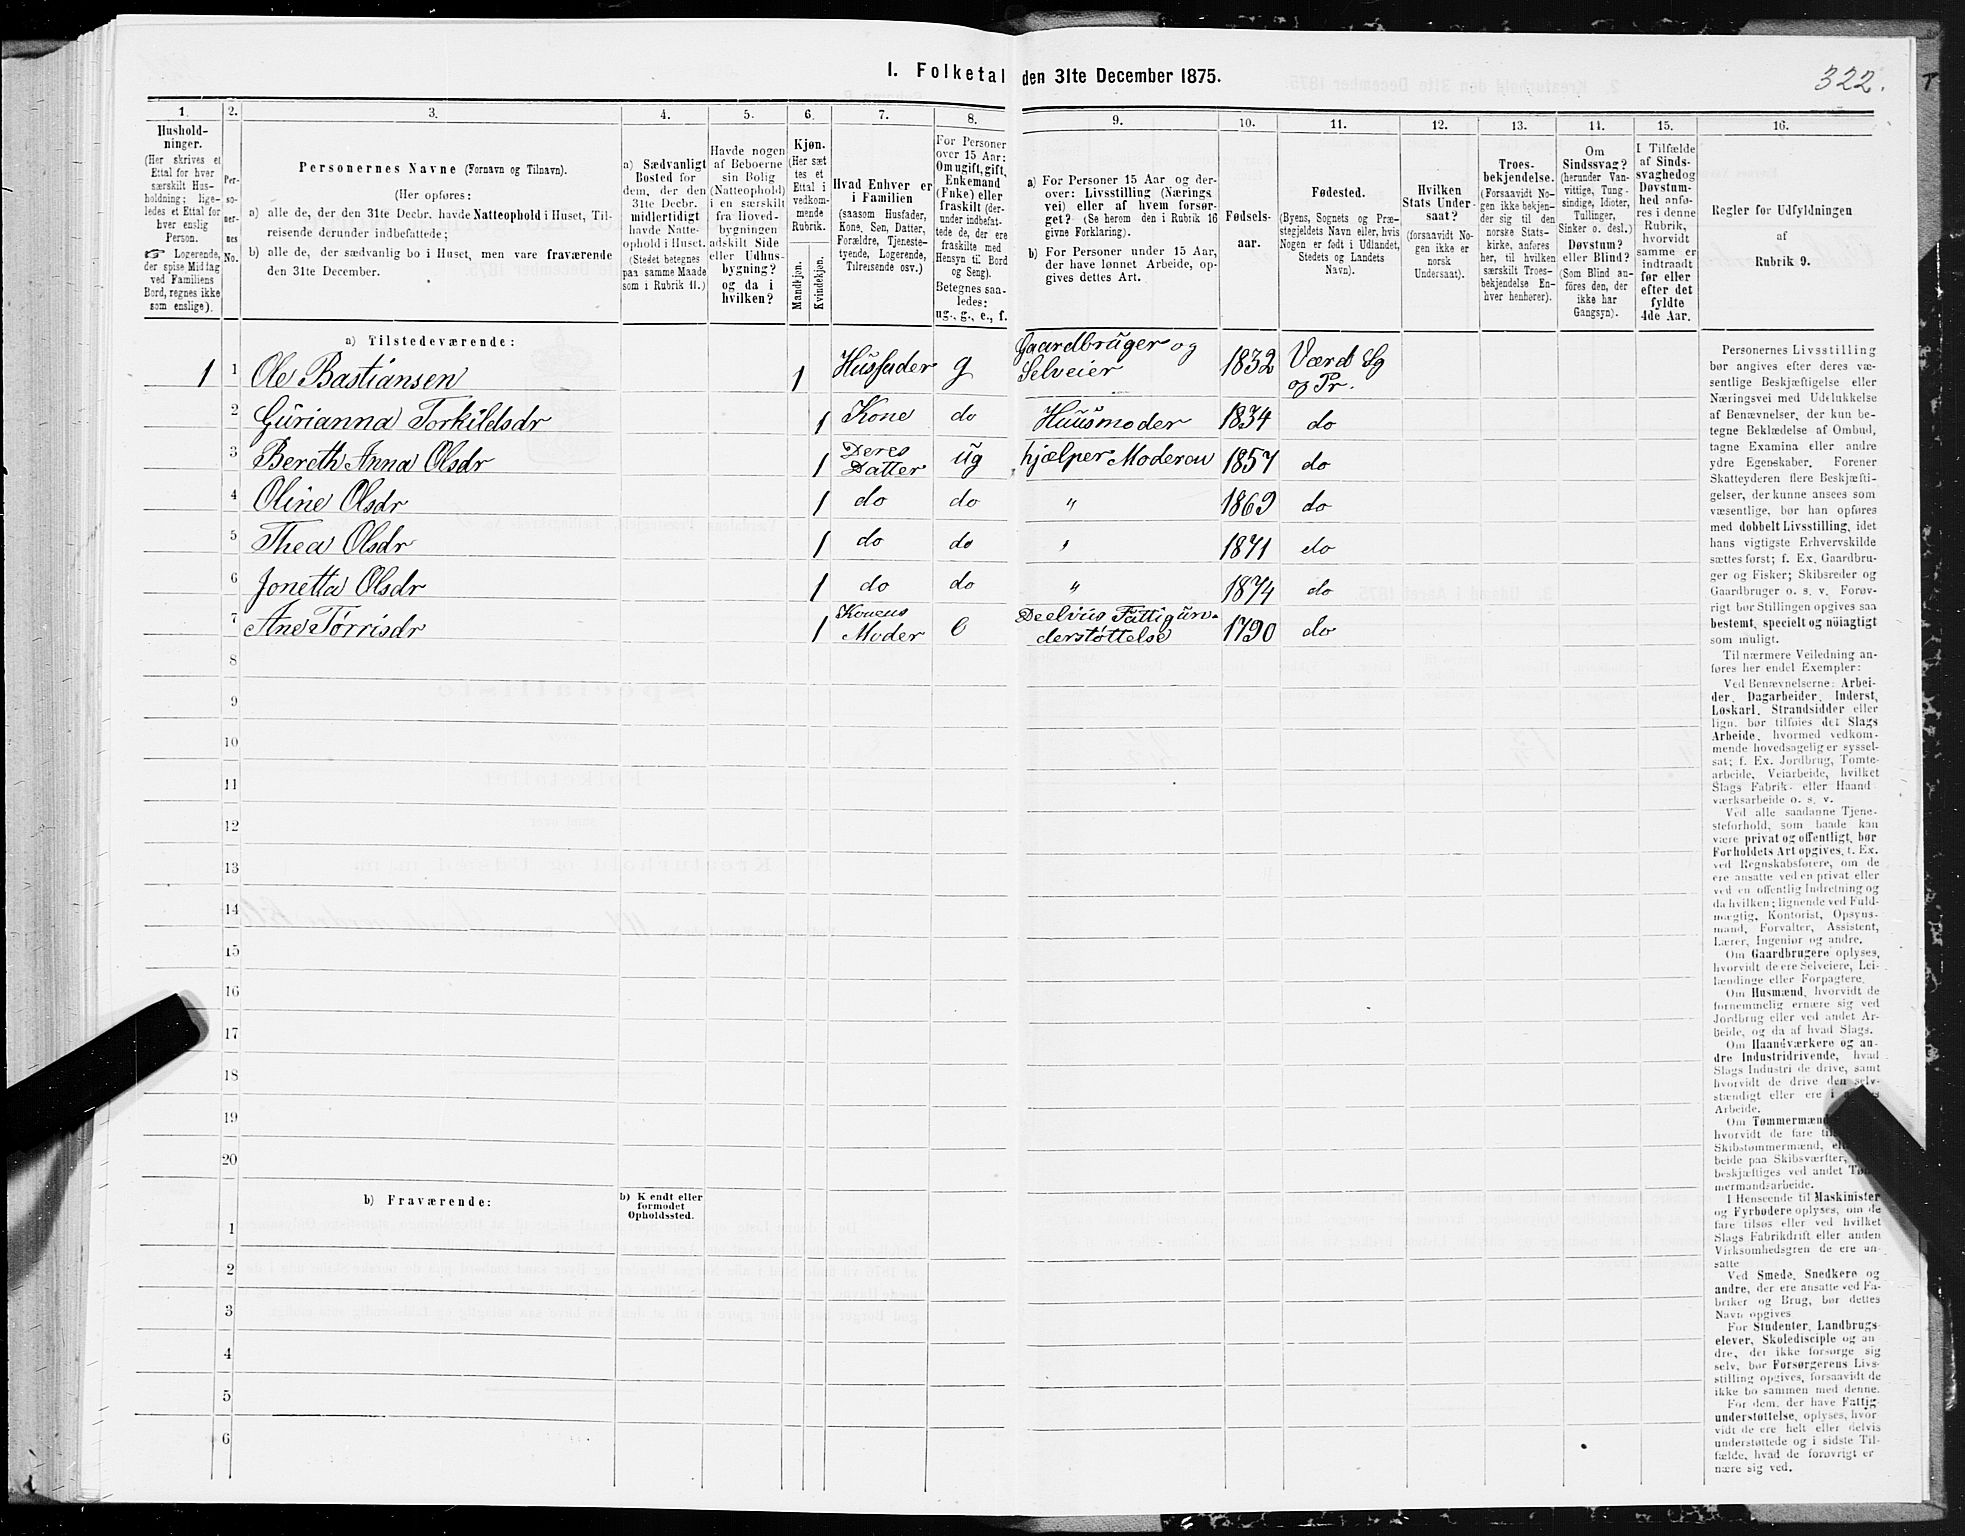 I. Folketal den 31te December 1875.
322.
1.
Hushold-
ninger.
(Her skrives et
Ettal for hver
særskilt Hus-
holdning; lige-
ledes et Ettal for
hver enslig
Person.
☞ Logerende,
der spise Middag
ved Familiens
Bord, regnes ikke
som enslige).
2.
Per-
so-
ner-
nes
No.
3.
Personernes Navne (Fornavn og Tilnavn).
(Her opføres:
a) alle de, der den 31te Decbr. havde Natteophold i Huset, Til-
reisende derunder indbefattede;
b) alle de, der sædvanlig bo i Huset, men vare fraværende
den 31te December.
4.
a) Sædvanligt
Bosted for
dem, der den
31te Decbr.
midlertidigt
havde Natte-
ophold i Huset.
(Stedet betegnes
paa samme Maade
som i Rubrik 11.)
5.
Havde nogen
af Beboerne
sin Bolig
(Natteophold)
i en særskilt
fra Hoved-
bygningen
adskilt Side
eller Udhus-
bygning?
og da i
hvilken?
6.
Kjøn.
(Her sæt
tes et
Ettal i
vedkom-
mende
Rubrik.
Mandkjøn.
Kvindekjøn.
7.
Hvad Enhver er
i Familien
(saasom Husfader,
Kone, Søn, Datter,
Forældre, Tjeneste-
tyende, Logerende,
Tilreisende osv.)
8.
For Personer
over 15 Aar:
Om ugift, gift,
Enkemand
(Enke) eller
fraskilt (der-
under indbefat-
tede de, der ere
fraskilte med
Hensyn til Bord
og Seng).
Betegnes saa-
ledes:
ug., g., e., f.
9.
a) For Personer 15 Aar og der-
over: Livsstilling (Nærings
vei) eller af hvem forsør-
get? (Se herom den i Rubrik 16
givne Forklaring).
b) For Personer under 15 Aar,
der have lønnet Arbeide, op-
gives dettes Art.
10.
Fødsels-
aar.
11.
Fødested.
(Byens, Sognets og Præ-
stegjeldets Navn eller, hvis
Nogen er født i Udlandet,
Stedets og Landets
Navn).
12.
Hvilken
Stats Under-
saat?
(forsaavidt No-
gen ikke er
norsk
Undersaat).
13.
Troes-
bekjendelse.
(Forsaavidt No-
gen ikke bekjen-
der sig til den
norske Stats-
kirke, anføres
her, til hvilken
særskilt Troes-
bekjendelse En-
hver henhører).
14.
Om
Sindssvag?
(herunder Van-
vittige, Tung-
sindige, Idioter,
Tullinger,
Sinker o. desl.)
Døvstum?
eller Blind?
(Som Blind an-
føres den, der
ikke har
Gangsyn).
15.
I Tilfælde
af Sinds-
svaghed og
Døvstum-
hed anfø-
res i denne
Rubrik,
hvorvidt
samme er
indtraadt
før eller
efter det
fyldte
4de Aar.
16.
Regler før Udfyldningen
af
Rubrik 9.
a) Tilstedeværende:
1 1 Ole Bastiansen 1 Husfader g Gaardbruger og
Selveier 1832 Værd Sg
og Pr.
2 Gurianna Torkildsdr 1 Kone do Huusmoder 1834 do
3 Bereth Anna Olsdr 1 Deres
Datter ug hjælper Moderen 1857 do
4 Oline Olsdr 1 do do " 1869 do
5 Thea Olsdr 1 do do " 1871 do
6 Jonetta Olsdr 1 do do " 1874 do
7 Ane Tørrisdr 1 Konens
Moder e Deelvius Fattigun-
derstøttelse 1790 do
8
9
10
11
12
13
14
15
16
17
18
19
20
b) Fraværende:
b) Kjendt eller
formodet
Opholdssted.
1
2
3
4
5
6
Personernes Livsstilling
bør angives efter deres væ-
sentlige Beskjæftigelse eller
Næringsvei med Udelukkelse
af Benævnelser, der kun be-
tegne Beklædelse af Ombud,
tagne Examina eller andre
ydre Egenskaber. Forener
Skatteyderen flere Beskjæfti-
gelser, der kunne ansees som
væsentlige, bør han opføres
med dobbelt Livsstilling, idet
hans vigtigste Erhvervskilde
sættes først; f. Ex. Gaardbru-
ger og Fisker; Skibsreder og
Gaardbruger o. s. v. Forøv-
rigt bør Stillingen opgives saa
bestemt, specielt og nöiagtigt
som muligt.
Til nærmere Veiledning an-
føres her endel Exempler:
Ved Benævnelserne: Arbei-
der, Dagarbeider, Inderst,
Løskarl, Strandsidder eller
lign. bør tilføies det Slags
Arbeide, hvormed vedkom-
mende hovedsagelig er syssel-
sat; f. Ex. Jordbrug, Tomte-
arbeide, Veiarbeide, hvilket
Slags Fabrik- eller Haand-
værksarbeide o. s. v.
Ved alle saadanne Tjene-
steforhold, som baade kan
være privat og offentligt, bør
Forholdets Art opgives, f. Ex.
ved Regnskabsførere, om de
ere ansatte ved en privat eller
ved en offentlig Indretning og
da hvilken; lignende ved Fuld-
mægtig, Kontorist, Opsyns-
mand, Forvalter, Assistent,
Lærer, Ingeniør og andre.
Om Gaardbrugere oplyses,
hvorvidt de ere Selveiere, Lei-
lændinge eller Forpagtere.
Om Husmænd, hvorvidt de
fornemmelig ernære sig ved
Jordbrug eller ved andet Ar-
beide, og da af hvad Slags.
Om Haandværkere og an-
dre Industridrivende, hvad
Slags Industri de drive, samt
hvorvidt de drive den selv-
stændigt eller ere i
Arbeide.
Om Tømmermænd
hvorvidt de fare
Skibstømmermænd,
beide paa Skibsværfter,
beskjæftiges ved andet Tøm-
mermandsarbeide.
I Henseende til Maskinister
og Fyrbødere oplyses, om de
fare tilsøs eller ved hvilket
Slags Fabrikdrift eller anden
Virksomhedsgren de ere an-
satte
Ved Smede, Snedkere og
andre, der ere ansatte ved Fa-
briker og Brug, bør dettes
Navn opgives
For Studenter, Landbrugs-
elever, Skoledisciple og an-
dre, der ikke forsørge sig
selv, bør Forsørgerens Livs-
stilling opgives, forsaavidt de
ikke bo sammen med denne.
For dem, der have Fattig-
understøttelse, oplyses, hvor-
vidt de ere helt eller delvis
understøttede og i sidste Til-
fælde, hvad de forøvrigt er-
nære sig ved.